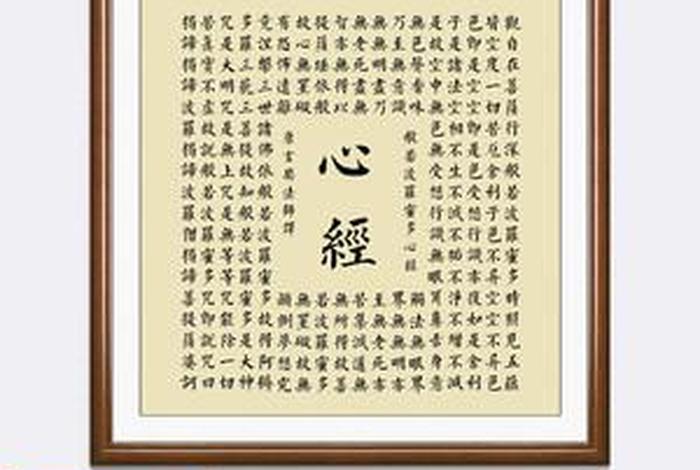 觀自在菩薩行深般若波羅蜜多時照見五蘊
皆空度一切苦厄舍利子色不異空空不異色
色即是空空即是色受想行識亦復如是舍利
子是諸法空相不生不滅不垢不淨不增不減
是故空中無色無受想行識無眼耳鼻舌身意
無色聲香味
觸法無眼界
乃至無意識
界無無明亦
無無明盡乃
至無老死亦
無老死盡無
苦集滅道無
智亦無得以
無所得故菩
提薩埵依般
若波羅蜜多
故心無罣礙
無罣礙故無
有恐怖遠離
顛倒夢想究
般若波羅蜜多心經
心經
唐玄奘法師譯
竟涅槃三世諸佛依般若波羅蜜多故得阿耨
多羅三藐三菩提故知般若波羅蜜多是大神
咒是大明咒是無上咒是無等等咒能除一切
苦真實不虛故說般若波羅蜜多咒即說咒曰
揭諦揭諦波羅揭諦波羅僧揭諦菩提薩婆訶